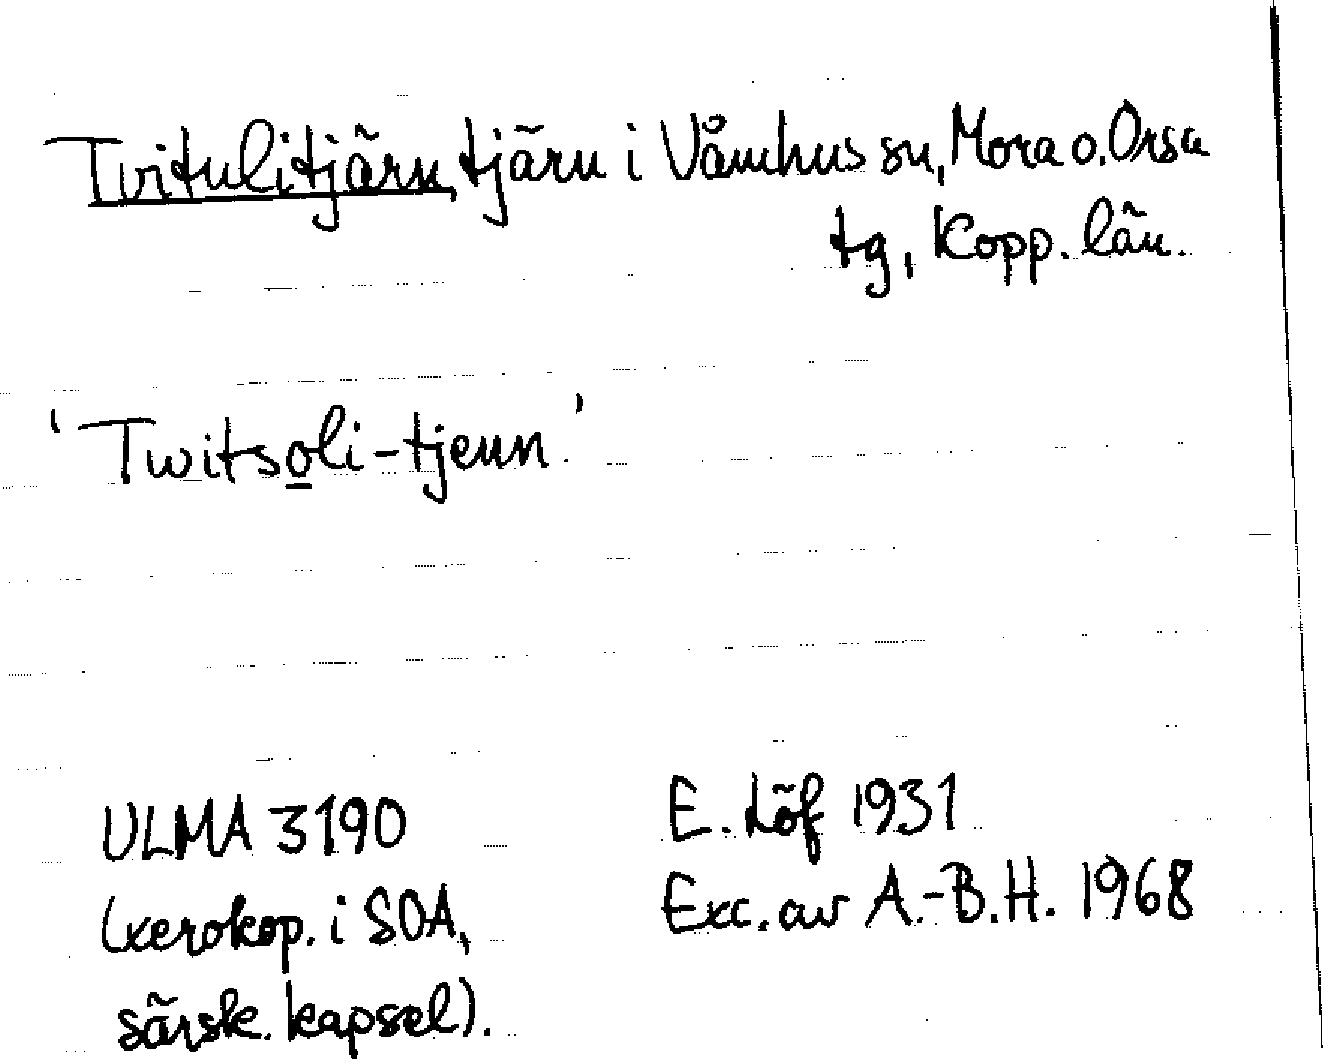 Tvitulitjärn, tjärn i Våmhus sn, Mora o. Orsa
tg, Kopp. län.
'Twitsoli-tjenn.'
ULMA 3190
(xerokop. i SOA,
särsk. kapsel).
E. Löf 1931
Exc. av A.-B.H. 1968